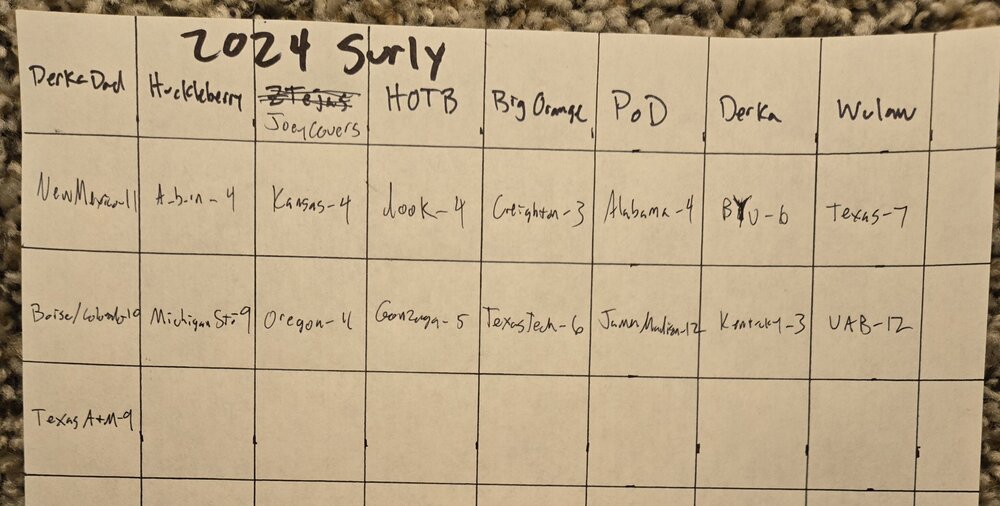 2024 Surly
DerkaDad Huckleberry HOTB Big Orange PoD Derka Wulaw
JoeyCovers
NewMexico-11 Auburn-4 Kansas-4 dook-4 Creighton-3 Alabama-4 BYU-6 Texas-7
Boise/Colorado-10 Michigan St-9 Oregon-4 Gonzaga-5 TexasTech-6 James Madison-12 Kentucky-3 UAB-12
Texas A+M-9